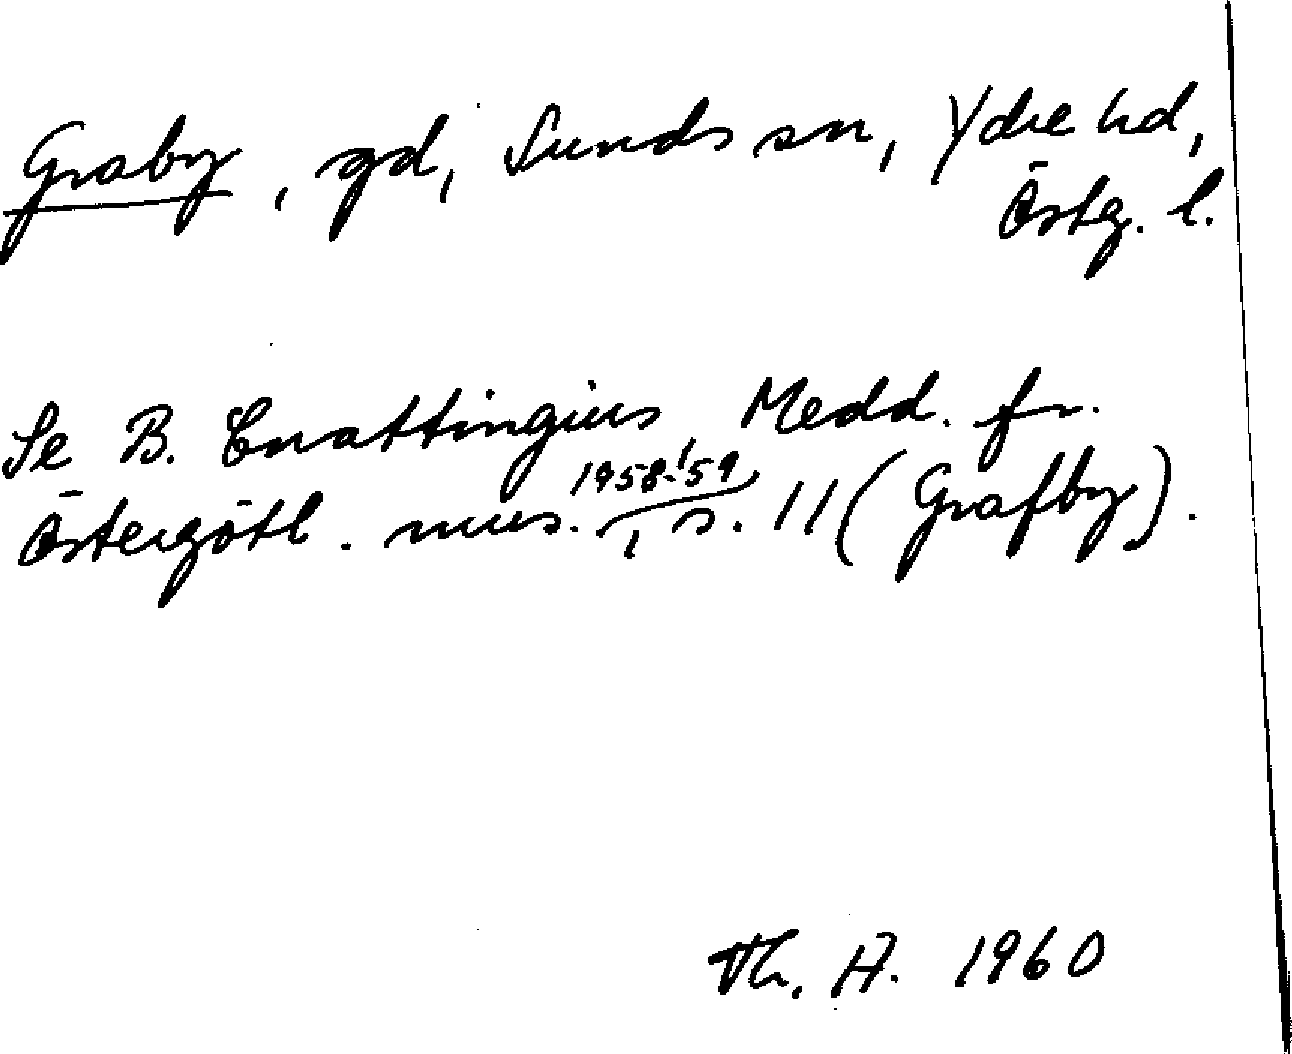 Graby, gd, Sunds sn, Ydre hd,
Östg. l.
Se B. Cnattingius, Medd. fr.
Östergötl. mus. 1958-'59, s. 11 (Grafby).
Th. A. 1960